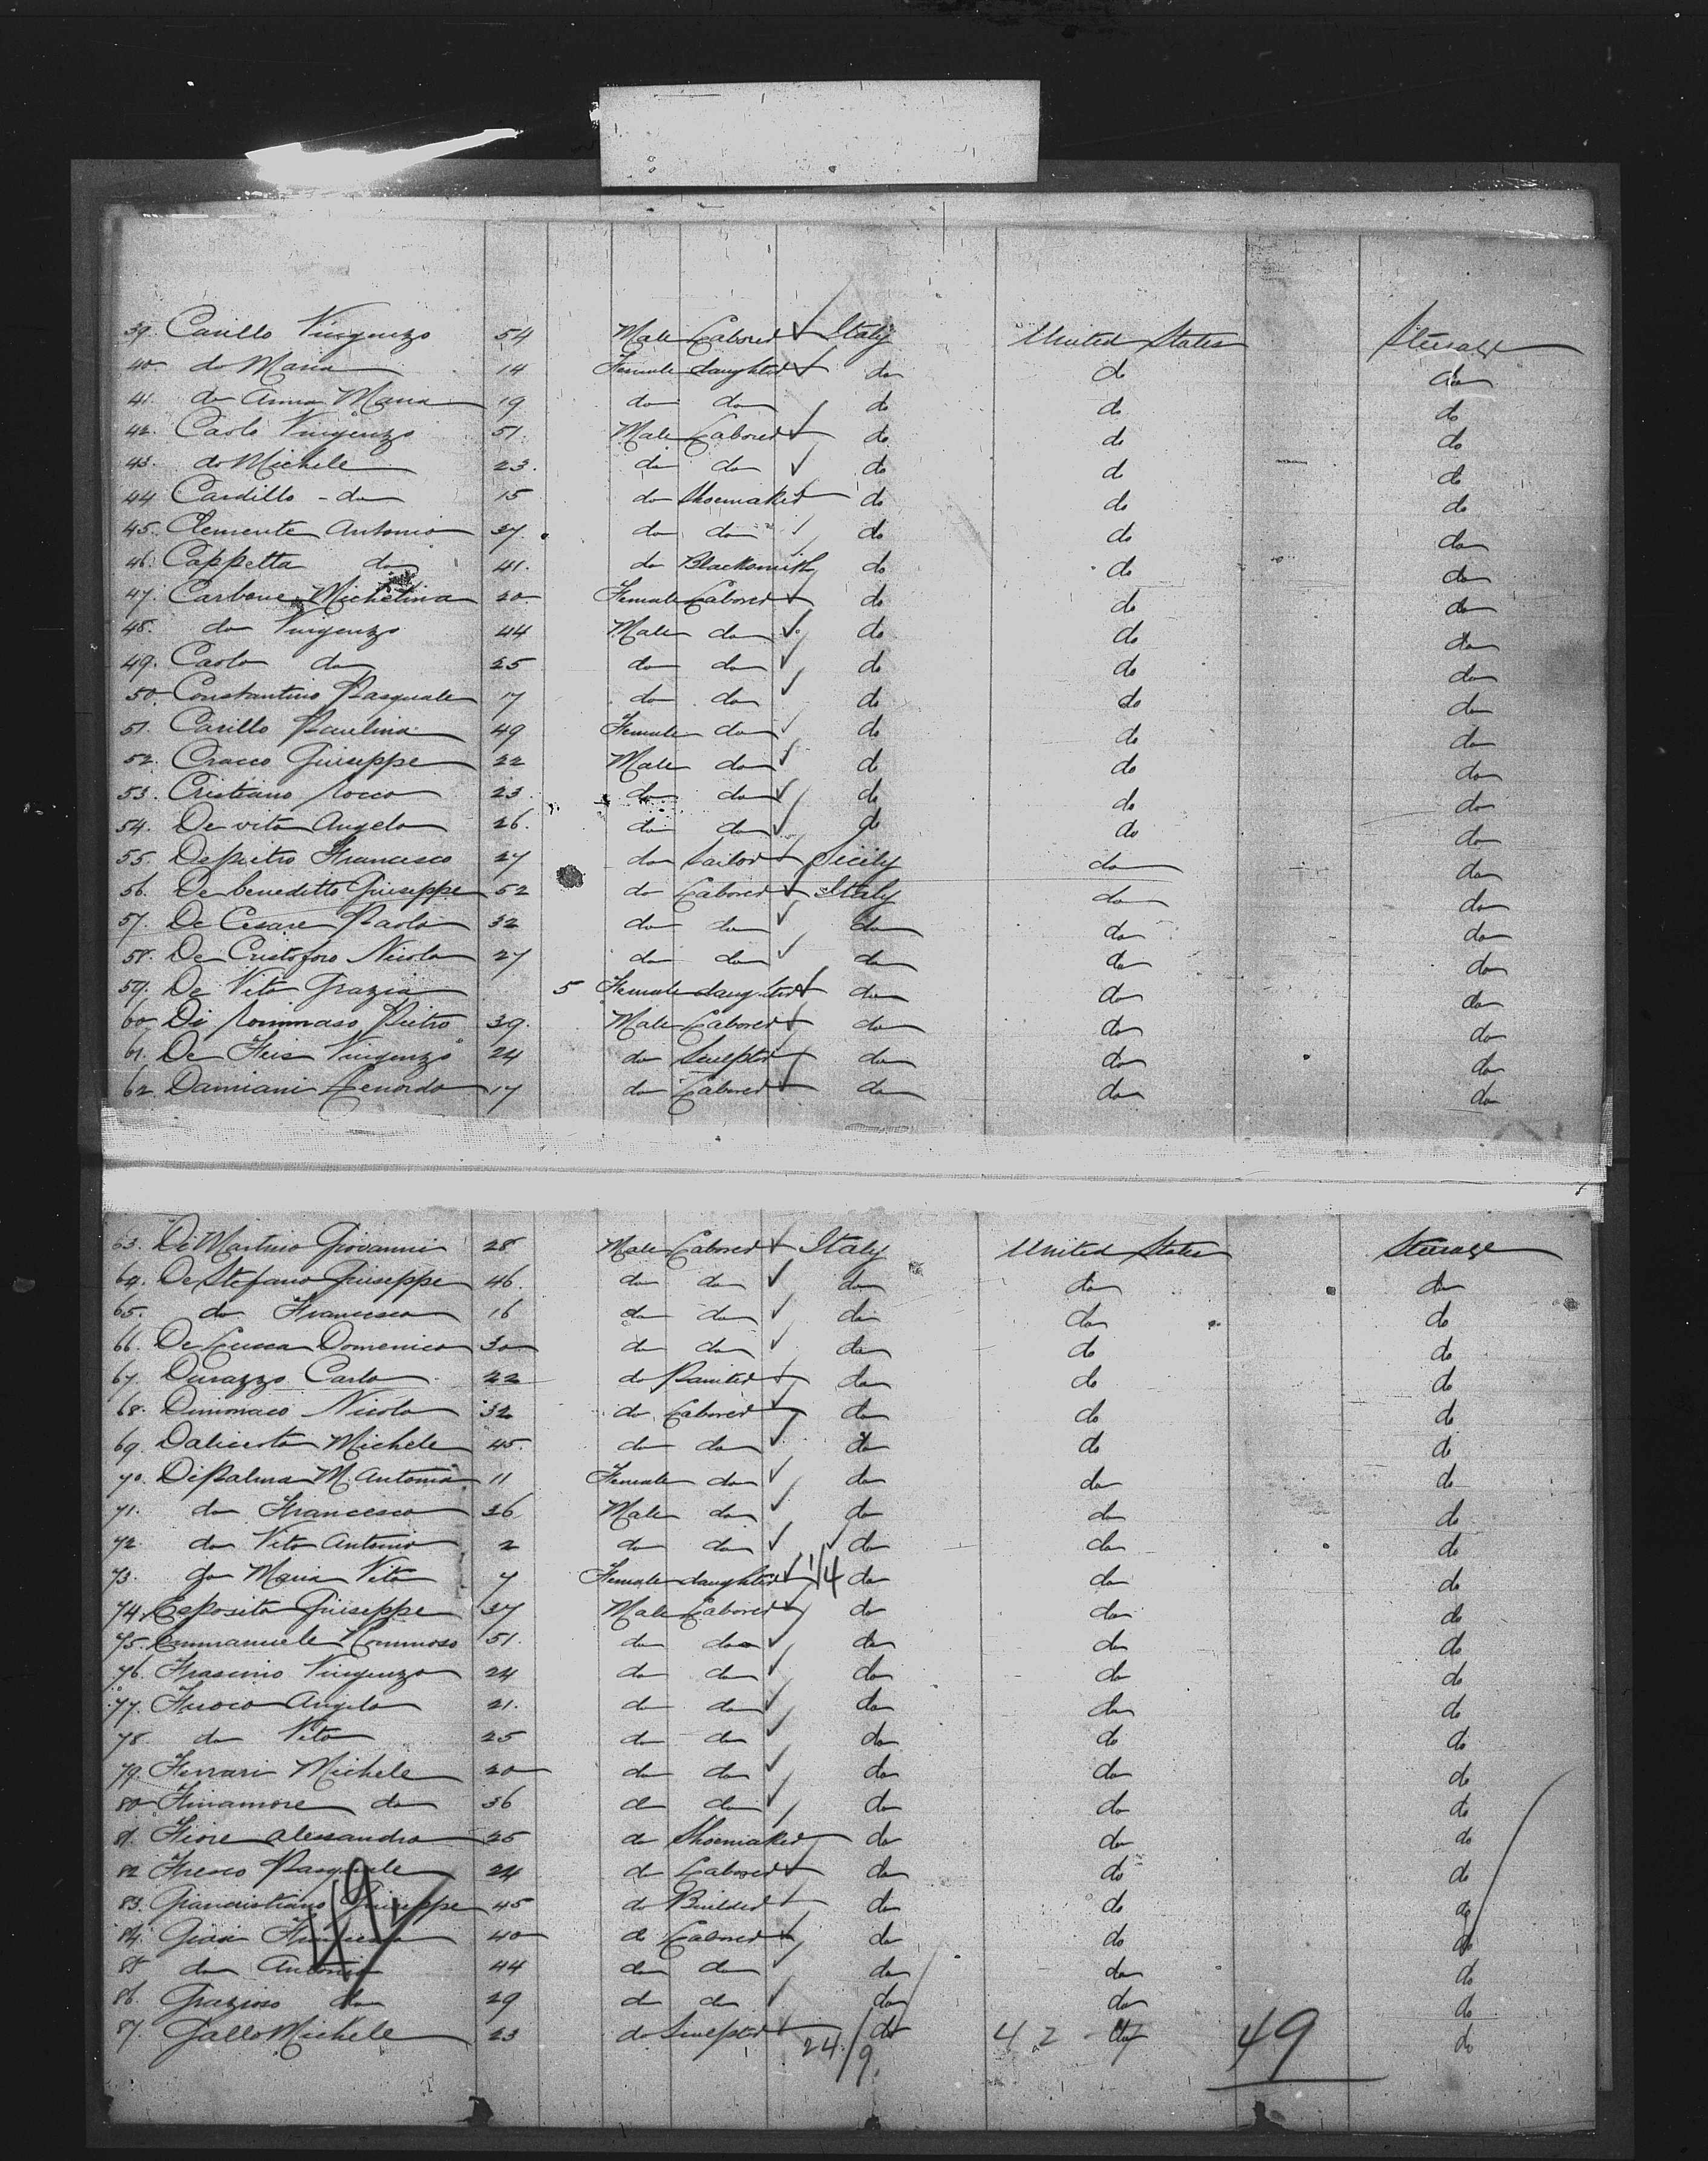 39. Carillo Vingenzo 54 Male Laborer Italy United States Steerage
40 do Maria 14 Female daughter do do do
41. do Anna Maria 19 do do do do do
42. Carlo Vingenzo 51. Male Laborer do do do
43. do Michele 23. do do do do do
44 Cardillo - do 15 do Shoemaker do do do
45. Clemente Antonio 37. do do do do do
46. Cappetta do 41. do Blacksmith do do do
47. Carbone Michelina 20 Female Laborer do do do
48. do Vingenzo 44 Male do do do do
49. Carlo do 25 do do do do do
50. Constantino Pasquale 17 do do do do do
51. Carillo Paulina 49 Female do do do do
52. Cracco Giuseppe 22 Male do do do do
53. Cristiano Rocco 23 do do do do do
54. De vito Angelo 26. do do do do do
55. Depietro Francesco 27 do Tailor Sicily do do
56. De benedetto Giuseppe 52 do Laborer Italy do do
57. De Cesare Paolo 32 do do do do do
58. De Cristoforo Nicola 27 do do do do do
59. De Vito Grazia 5 Female daughter do do do
60 Di Tommaso Pietro 39. Male Laborer do do do
61. De Feis Vingenzo 24 do Sculptor do do do
62 Damiani Lenordo 17 do Laborer do do do
63. Di Martino Giovanni 28 Male Laborer Italy United States Steerage
64. De Stefano Giuseppe 46. do do do do do
65. do Francesco 16 do do do do do
66. De Lucca Domenico 30 do do do do do
67. Durazzo Carlo 22 do Painter do do do
68. Dimonaco Nicola 32 do Laborer do do do
69. Dalicerta Michele 45. do do do do do
70. Depalma M. Antonia 11 Female do do do do
71. do Francesco 36 Male do do do do
72. do Vito Antonio 2 do do do do do
73. do Maria Vita 7 Female daughter 14 do do do
74. Esposito Giuseppe 37 Male Laborer do do do
75. Emmanuele Tommoso 51. do do do do do
76. Frascino Vingenzo 24 do do do do do
77. Angelo 21. do do do do do
78. do Vito 25 do do do do do
79. Ferrari Michele 20 do do do do do
80 Finamore do 36 do do do do do
81. Fiore Alessandro 25 do Shoemaker do do do
82 Fresco Pasquale 24 do Laborer do do do
83. Giancristiano Giuseppe 45 do Builder do do do
84. Francesco 40 do Laborer do do do
85 do Antonio 44 do do do do do
86. Grazioso do 29 do do do do do
87. Gallo Michele 23 do Sculptor do do do
24/9. 42 - 7 49